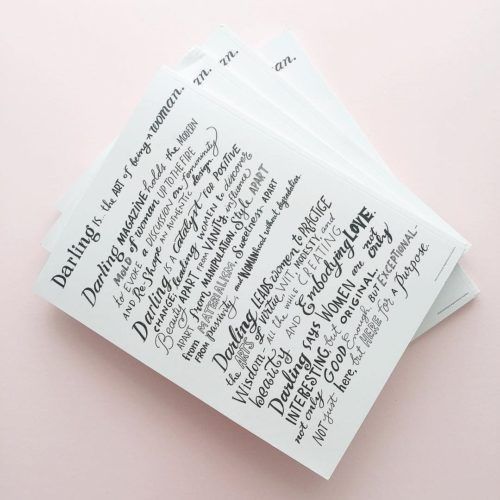 Darling is the ART of being a woman.
Darling MAGAZINE holds the MODERN
MOLD of woman UP TO THE FIRE
to EVOKE a DISCUSSION on femininity
AND re-Shape AN AUTHENTIC design.
Darling IS A catalyst FOR POSITIVE
CHANGE, leading WOMEN to discover
Beauty APART from VANITY, influence
APART from MANIPULATION, Style APART
from MATERIALISM, Sweetness APART
FROM passivity, and WOMANhood without degradation.
Darling LEADS women to PRACTICE
the ARTS of virtue, WIT, MODESTY and
Wisdom all the while CREATING
beauty AND Embodying LOVE.
Darling SAYS WOMEN are NOT ONLY
INTERESTING, but ORIGINAL,
not only GOOD Enough, BUT EXCEPTIONAL—
NOT just here, but HERE for a Purpose.
an.
an.
an.